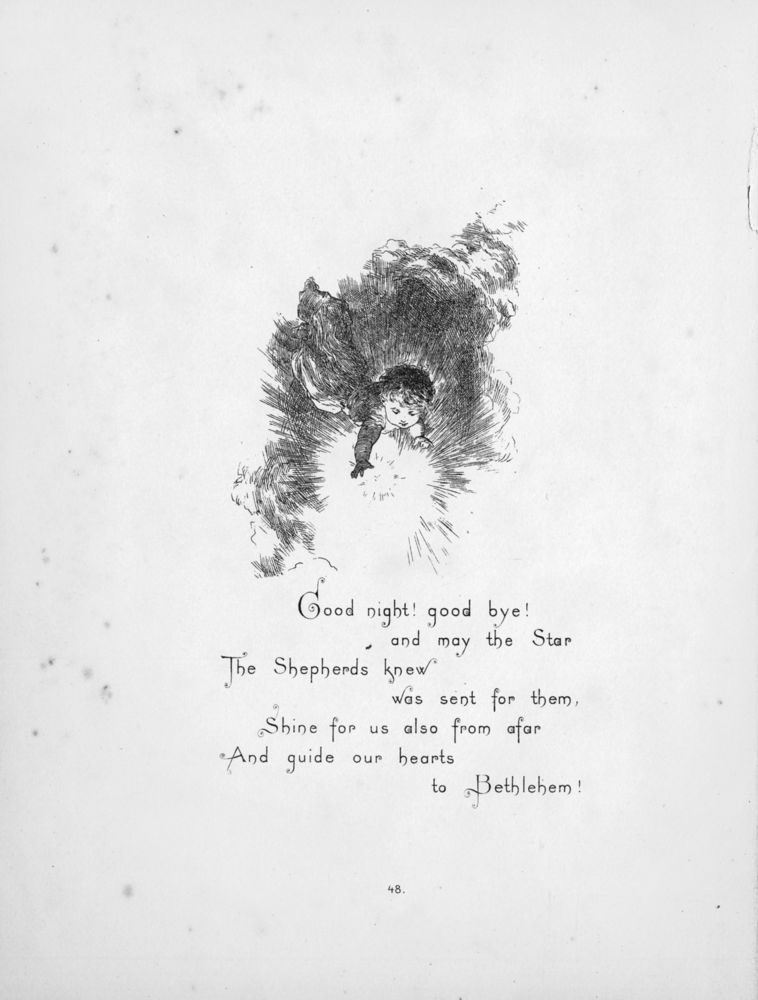 Good night! good bye!
and may the Star
The Shepherds knew
was sent for them,
Shine for us also from afar
And guide our hearts
to Bethlehem!
48.